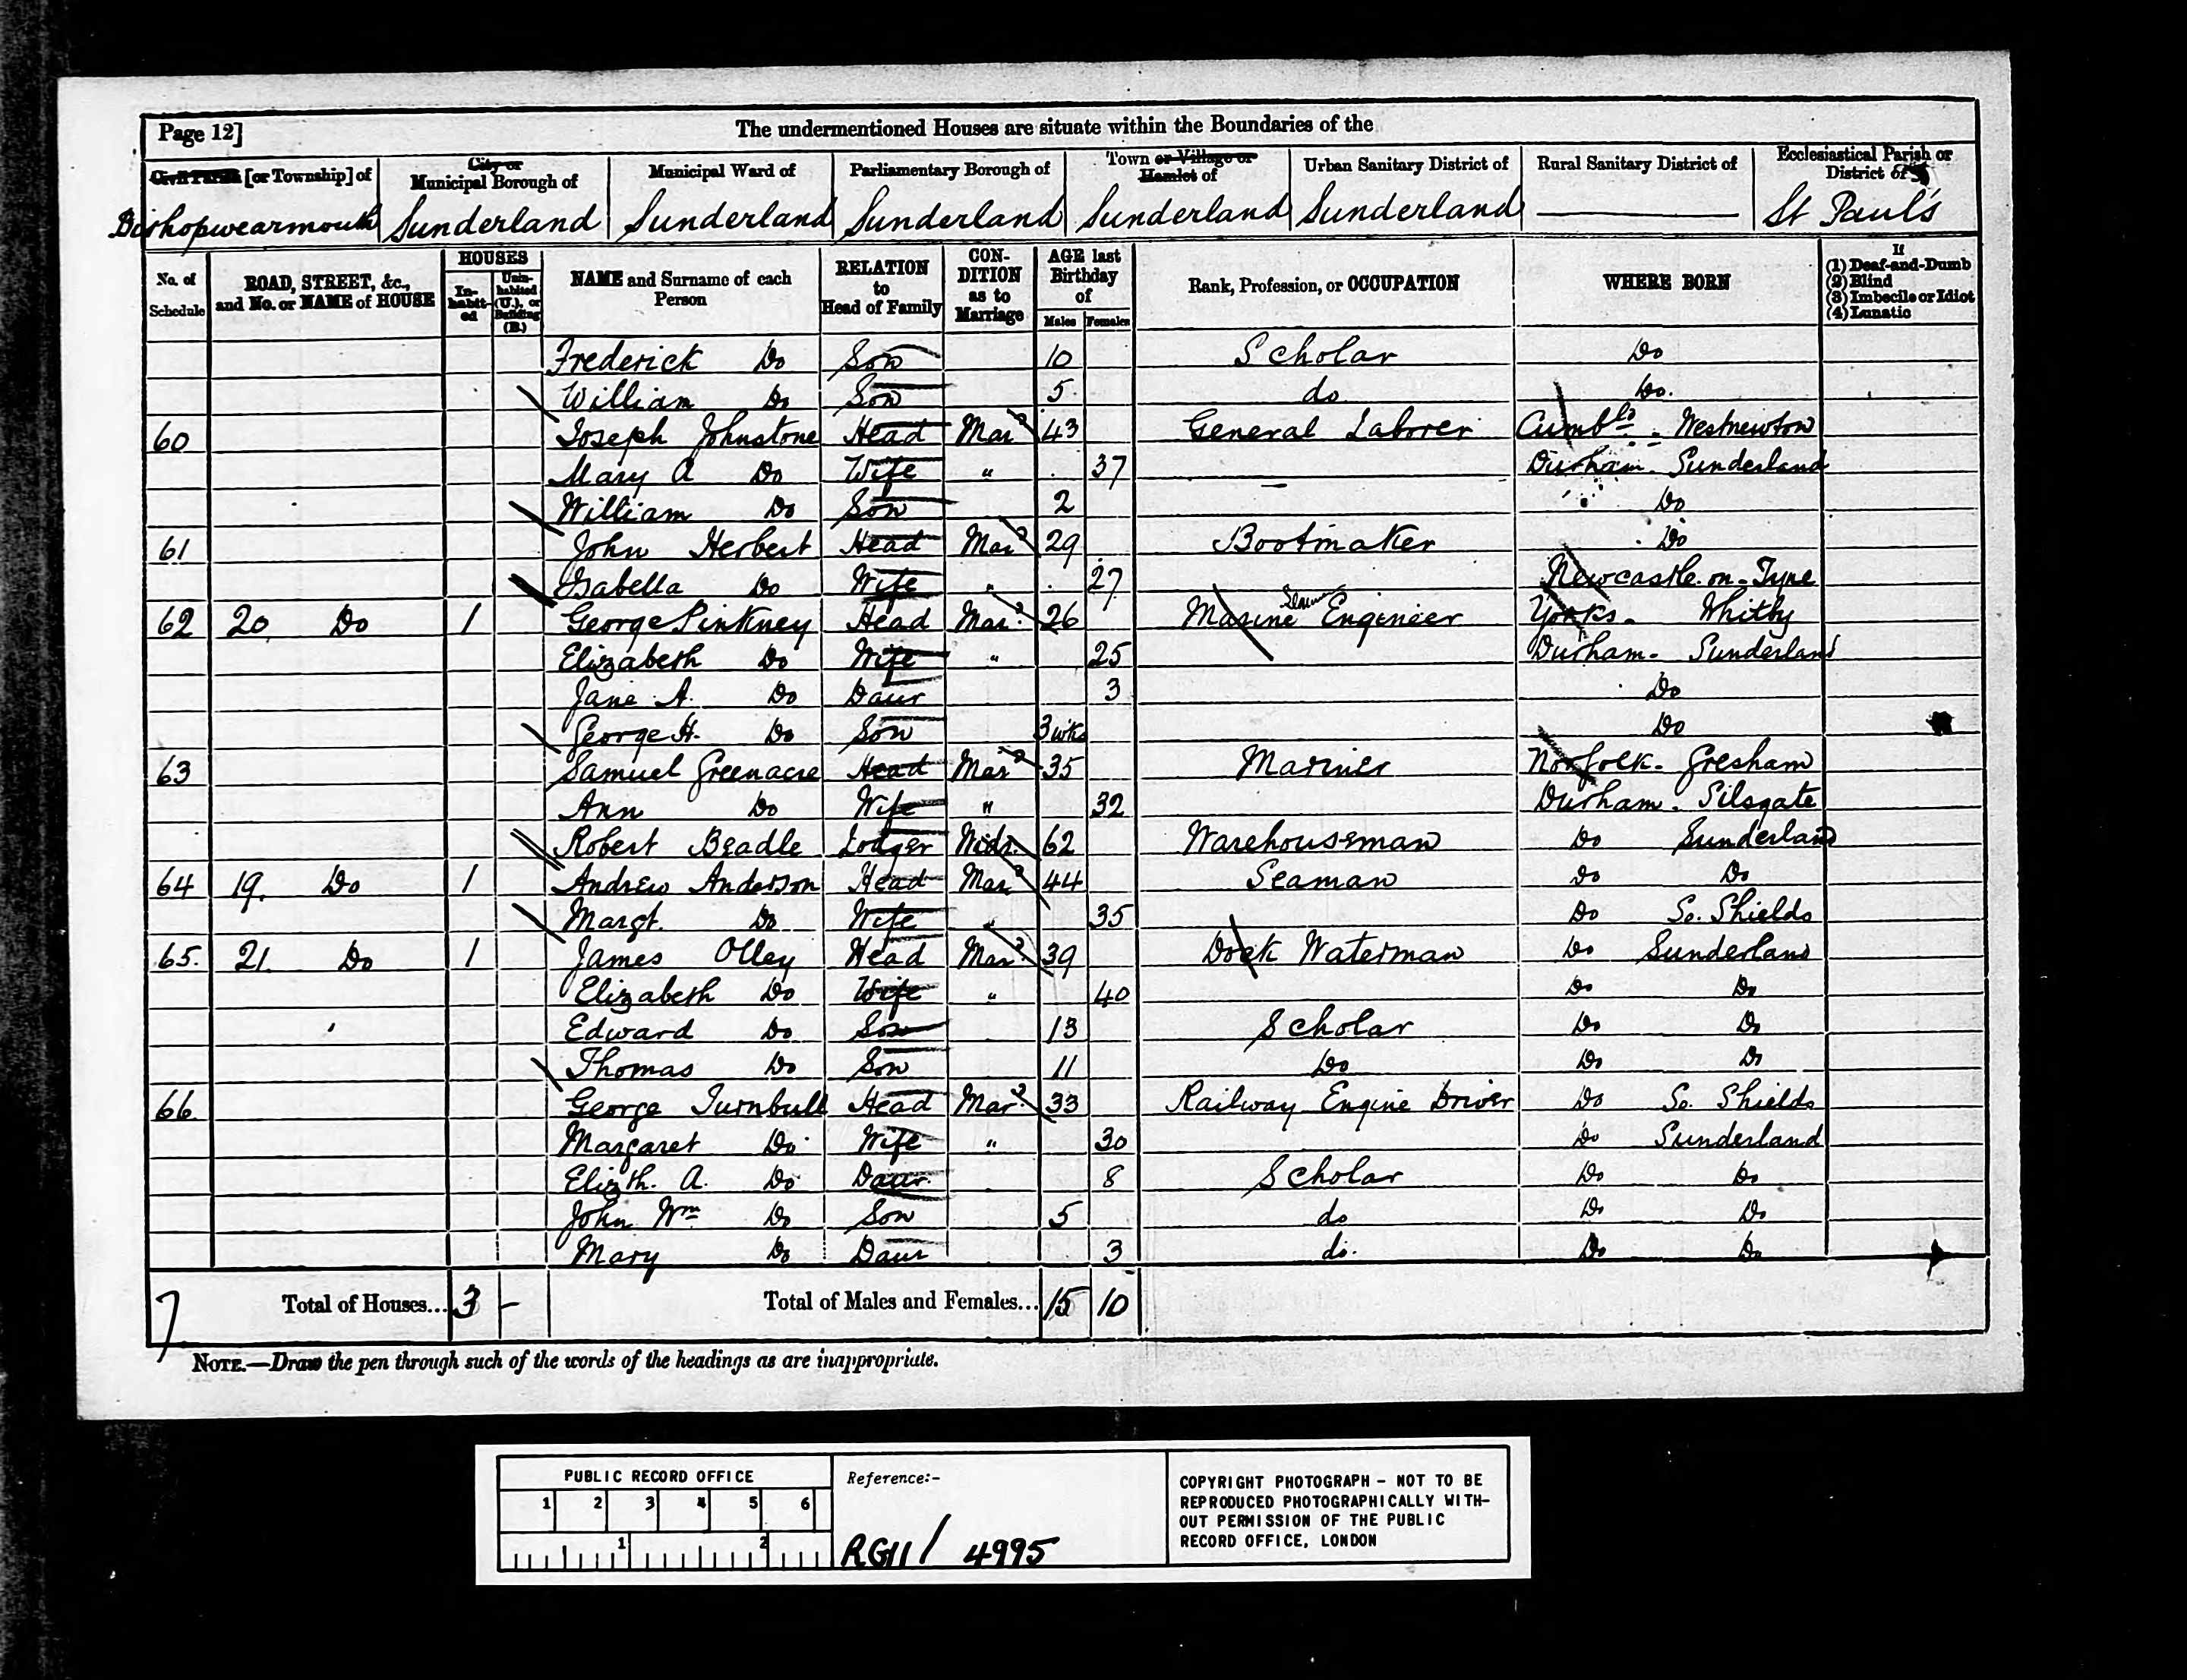 Page 12]
The undermentioned Houses are situate within the Boundaries of the
Civil Parish [or Township] of
City or Municipal Borough of
Municipal Ward of
Parliamentary Borough of
Town or Village or Hamlet of
Urban Sanitary District of
Rural Sanitary District of
Ecclesiastical Parish or District of
Bishopwearmouth Sunderland Sunderland Sunderland Sunderland Sunderland St Paul's
No. of Schedule
ROAD, STREET, &c., and No. or NAME of HOUSE
HOUSES
In-habit-ed
Unin-habited (U.), or Building (B.)
NAME and Surname of each Person
RELATION to Head of Family
CON-DITION as to Marriage
AGE last Birthday of
Males Females
Rank, Profession, or OCCUPATION
WHERE BORN
If
(1) Deaf-and-Dumb
(2) Blind
(3) Imbecile or Idiot
(4) Lunatic
Frederick Do Son 10 Scholar Do
William Do Son 5 do Do.
60 Joseph Johnstone Head Mar 43 General Laborer Cumbld - Westnewton
Mary A Do Wife " 37 Durham - Sunderland
William Do Son 2 Do
61 John Herbert Head Mar 29 Bootmaker Do
Isabella Do Wife " 27 Newcastle-on-Tyne
62 20 Do 1 George Pinkney Head Mar 26 Marine Engineer Yorks. Whitby
Elizabeth Do Wife " 25 Durham - Sunderland
Jane A. Do Daur 3 Do
George H. Do Son 3 wks Do
63 Samuel Greenacre Head Mar 35 Mariner Norfolk - Gresham
Ann Do Wife " 32 Durham - Silsgate
Robert Beadle Lodger Widr. 62 Warehouseman Do Sunderland
64 19. Do 1 Andrew Anderson Head Mar 44 Seaman Do Do
Margt. Do Wife " 35 Do So. Shields
65. 21. Do 1 James Olley Head Mar 39 Dock Waterman Do Sunderland
Elizabeth Do Wife " 40 Do Do
Edward Do Son 13 Scholar Do Do
Thomas Do Son 11 Do Do Do
66. George Turnbull Head Mar 33 Railway Engine Driver Do So. Shields
Margaret Do Wife " 30 Do Sunderland
Elizth. A. Do Daur. 8 Scholar Do Do
John Wm Do Son 5 do Do Do
Mary Do Daur 3 do. Do Do
7 Total of Houses... 3 - Total of Males and Females... 15 10
NOTE.—Draw the pen through such of the words of the headings as are inappropriate.
PUBLIC RECORD OFFICE
1 2 3 4 5 6
1 2
Reference:-
RG11/ 4995
COPYRIGHT PHOTOGRAPH - NOT TO BE
REPRODUCED PHOTOGRAPHICALLY WITH-
OUT PERMISSION OF THE PUBLIC
RECORD OFFICE, LONDON